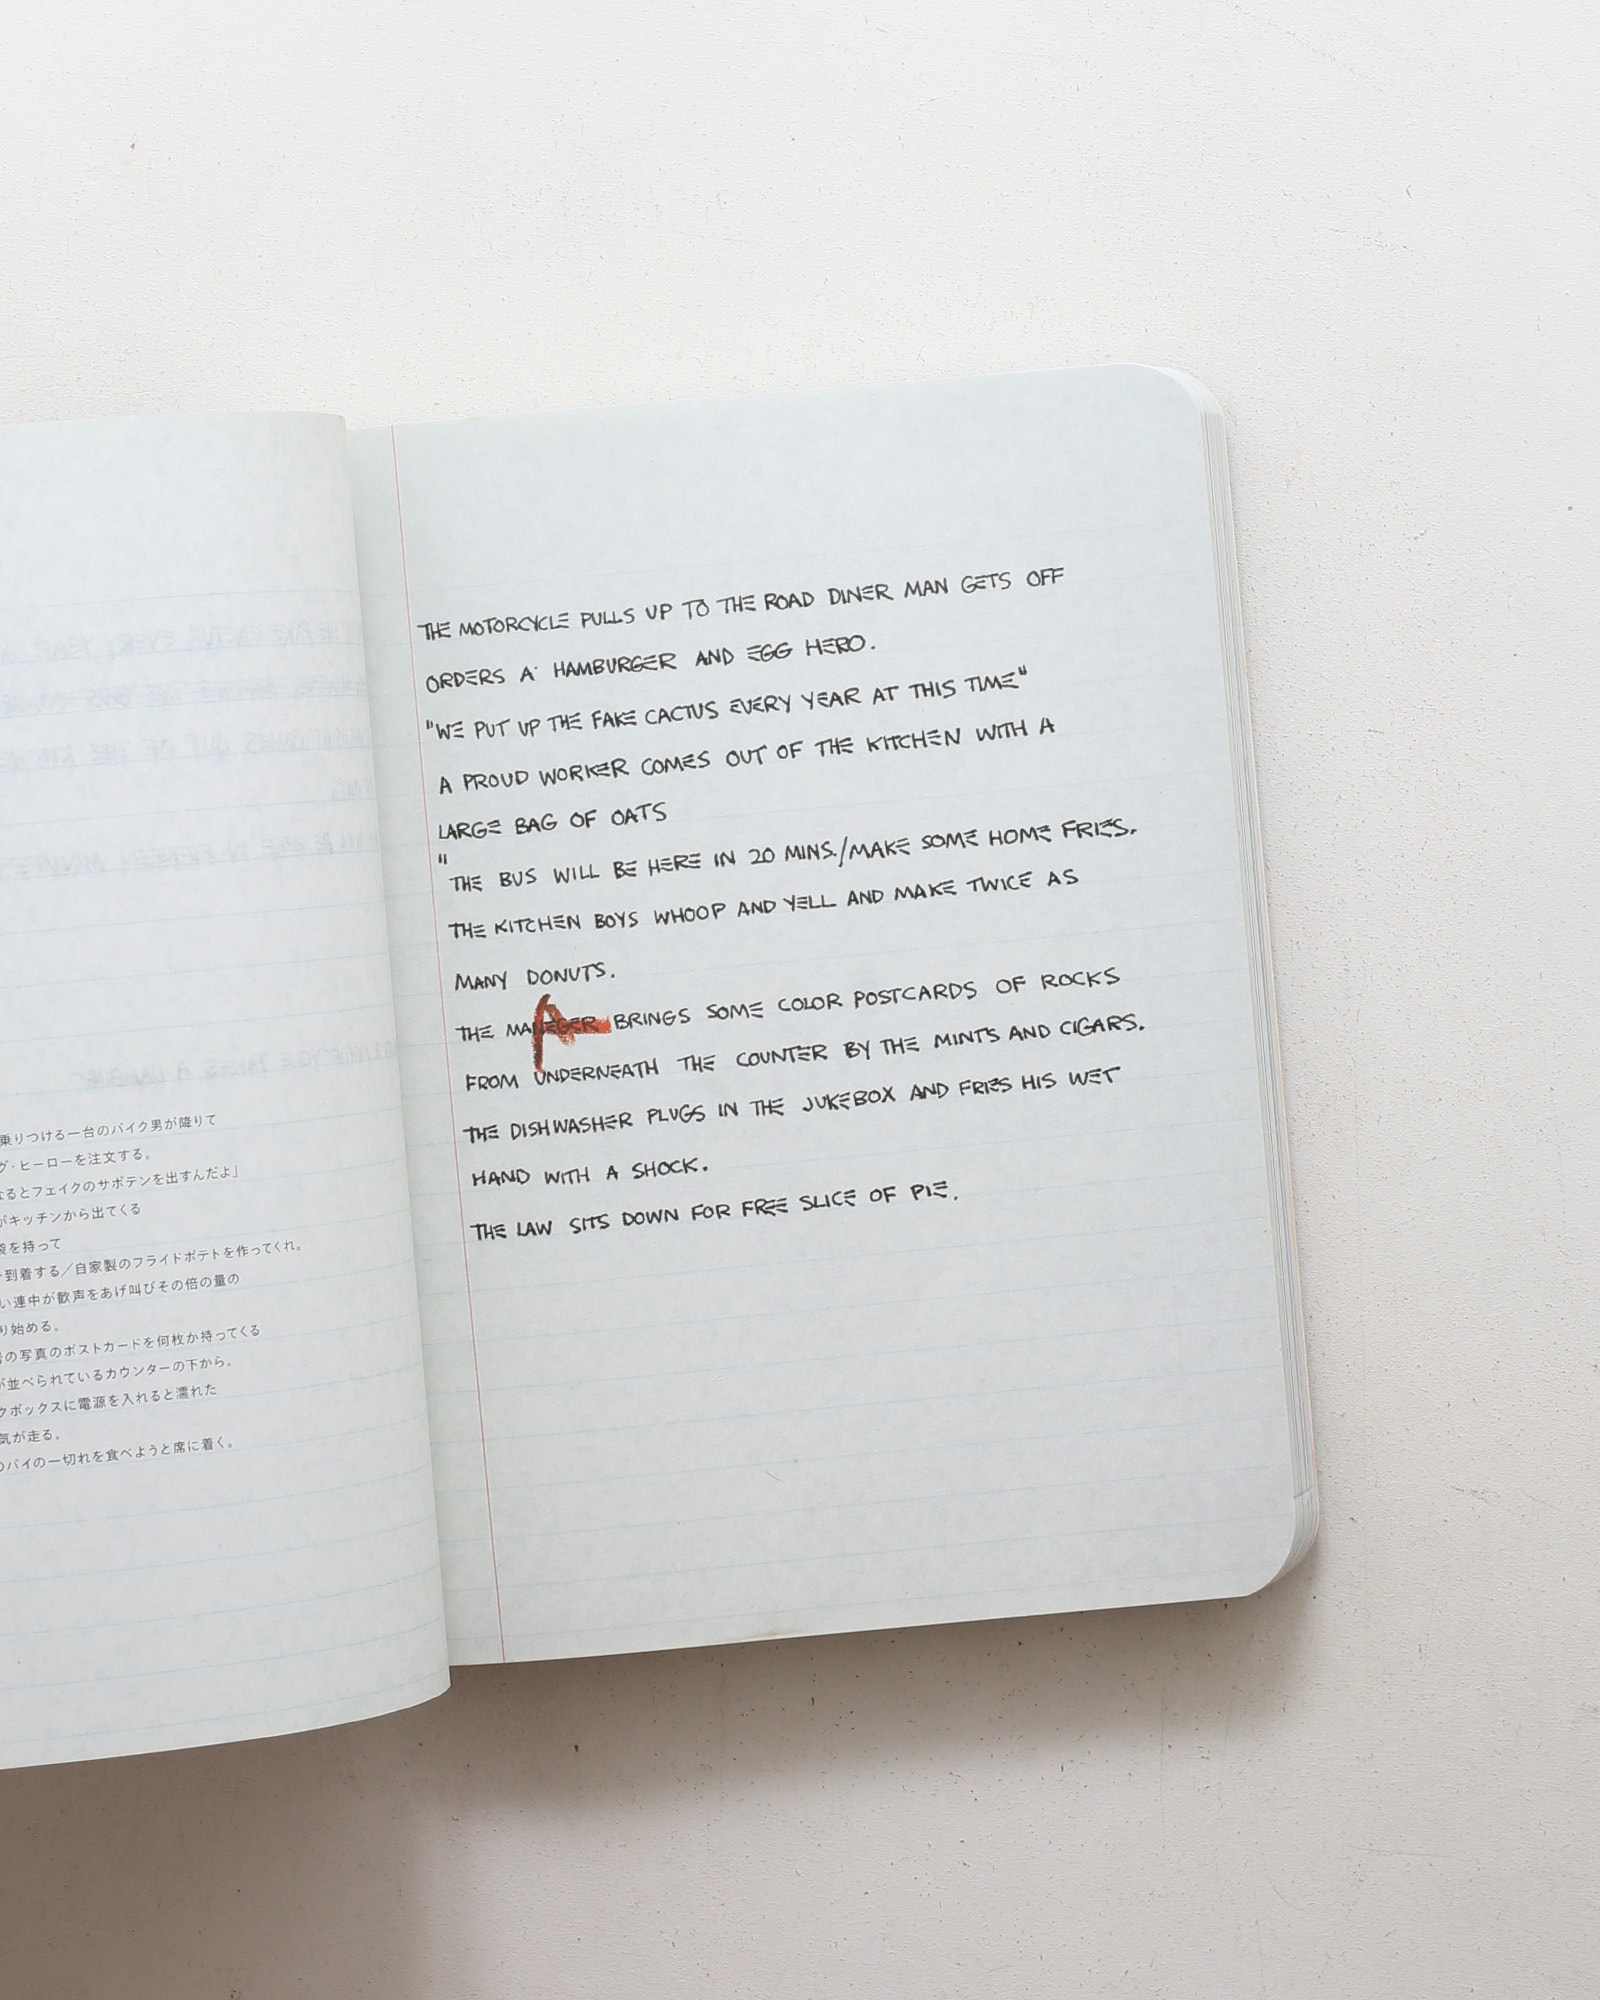 乗りつける一台のバイク男が降りて
グ・ヒーローを注文する。
なるとフェイクのサボテンを出すんだよ」
がキッチンから出てくる
袋を持って
到着する／自家製のフライドポテトを作ってくれ。
い連中が歓声をあげ叫びその倍の量の
り始める。
の写真のポストカードを何枚か持ってくる
が並べられているカウンターの下から。
クボックスに電源を入れると濡れた
気が走る。
のパイの一切れを食べようと席に着く。
THE MOTORCYCLE PULLS UP TO THE ROAD DINER MAN GETS OFF
ORDERS A HAMBURGER AND EGG HERO.
"WE PUT UP THE FAKE CACTUS EVERY YEAR AT THIS TIME"
A PROUD WORKER COMES OUT OF THE KITCHEN WITH A
LARGE BAG OF OATS
"THE BUS WILL BE HERE IN 20 MINS./MAKE SOME HOME FRIES.
THE KITCHEN BOYS WHOOP AND YELL AND MAKE TWICE AS
MANY DONUTS.
THE MANEGER BRINGS SOME COLOR POSTCARDS OF ROCKS
FROM UNDERNEATH THE COUNTER BY THE MINTS AND CIGARS.
THE DISHWASHER PLUGS IN THE JUKEBOX AND FRIES HIS WET
HAND WITH A SHOCK.
THE LAW SITS DOWN FOR FREE SLICE OF PIE.